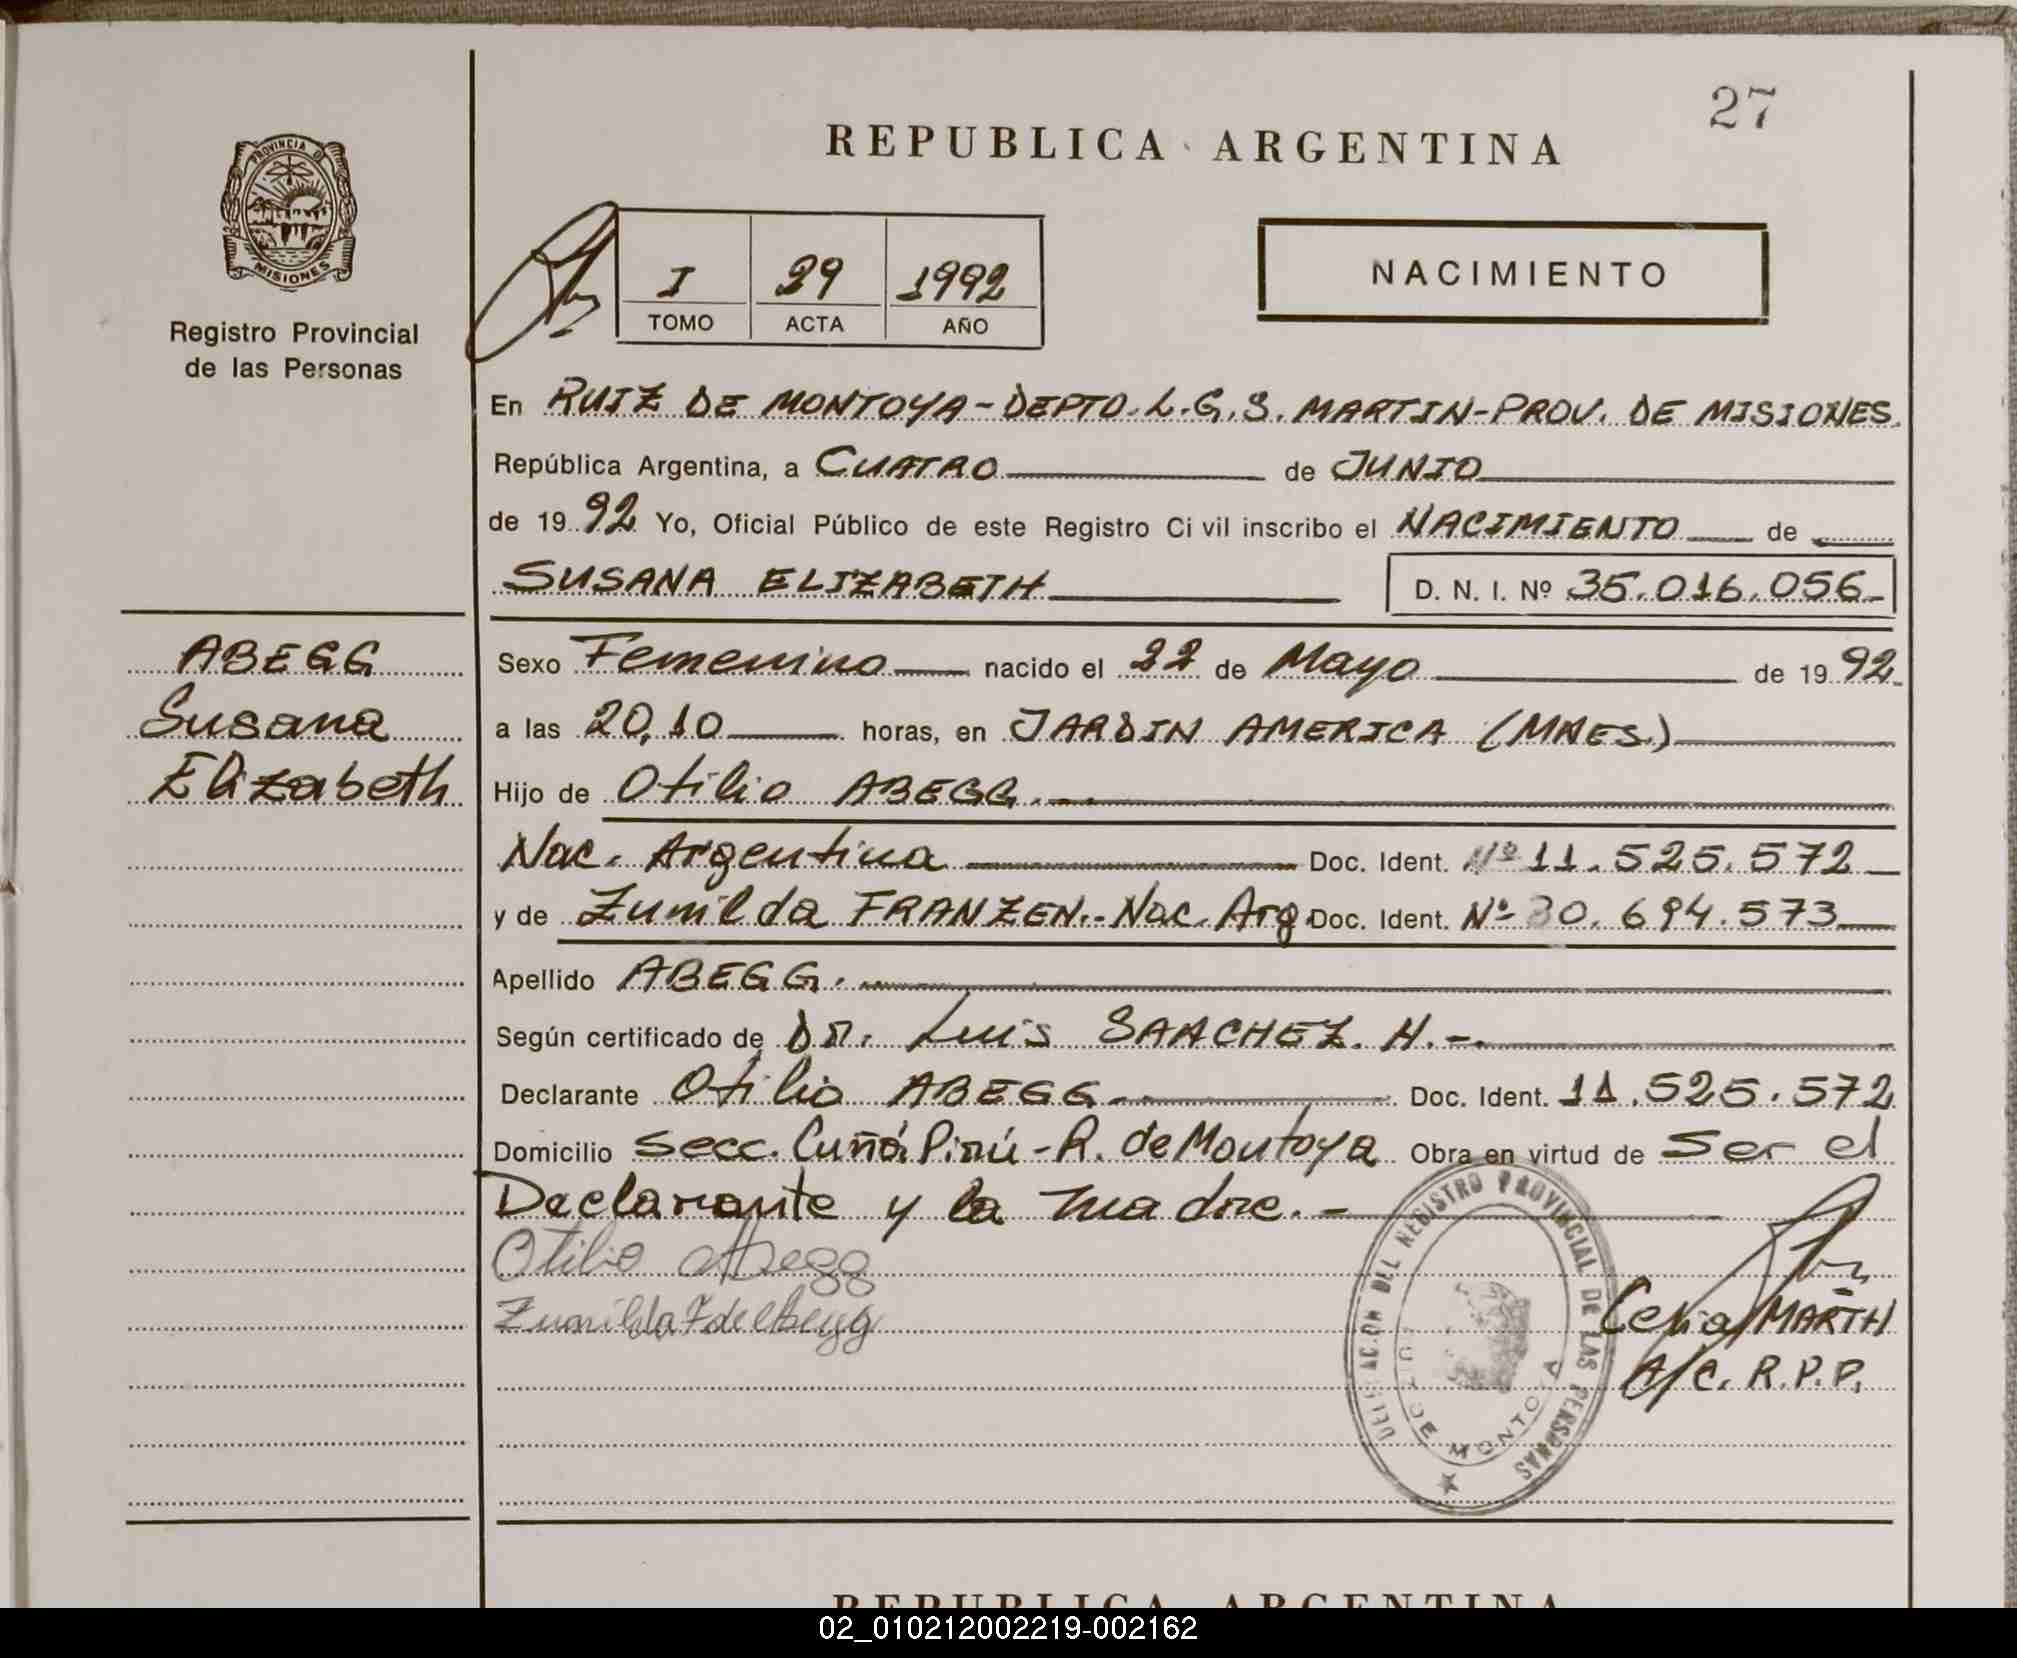 27
REPUBLICA ARGENTINA
PROVINCIA D
MISIONES
Registro Provincial
de las Personas
I 29 1992
TOMO ACTA AÑO
NACIMIENTO
En RUIZ DE MONTOYA-DEPTO. L.G.S. MARTIN-PROV. DE MISIONES.
República Argentina, a CUATRO de JUNIO
de 1992 Yo, Oficial Público de este Registro Civil inscribo el NACIMIENTO de
SUSANA ELIZABETH D. N. I. Nº 35.016.056
ABEGG
Susana
Elizabeth
Sexo Femenino nacido el 22 de Mayo de 1992
a las 20,10 horas, en JARDIN AMERICA (MNES.)
Hijo de Otilio ABEGG.-
Nac. Argentina Doc. Ident. Nº 11.525.572
y de Zunilda FRANZEN.-Nac. Arg. Doc. Ident. Nº 30.694.573
Apellido ABEGG.
Según certificado de DR. Luis SANCHEZ. H.-.
Declarante Otilio ABEGG.- Doc. Ident. 11.525.572
Domicilio Secc. Cuñá Pirú-R. de Montoya Obra en virtud de Ser el
Declarante y la madre.-
Otilio Abegg
Zunilda F de Abegg
DELEGACION DEL REGISTRO PROVINCIAL DE LAS PERSONAS
RUIZ DE MONTOYA
Celia MARTH
A/C. R.P.P.
REPUBLICA ARGENTINA
02_010212002219-002162